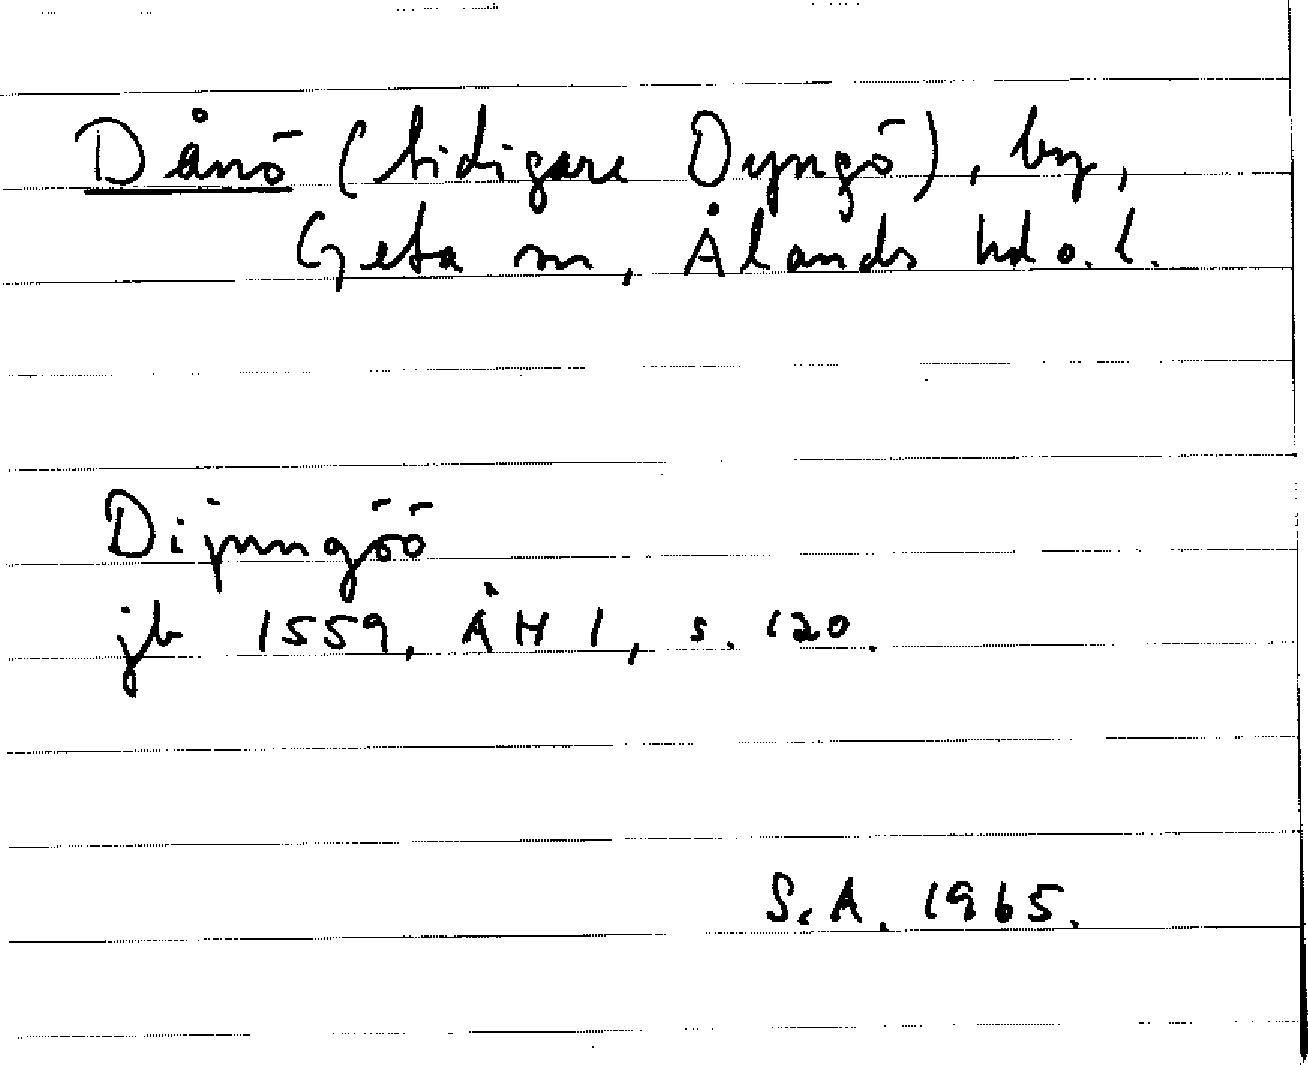 Dånö (tidigare Dyngö), by,
Geta sn, Ålands hd o. l.
Dijnngöö
jb 1559, ÅH 1, s. 120.
S.A. 1965.